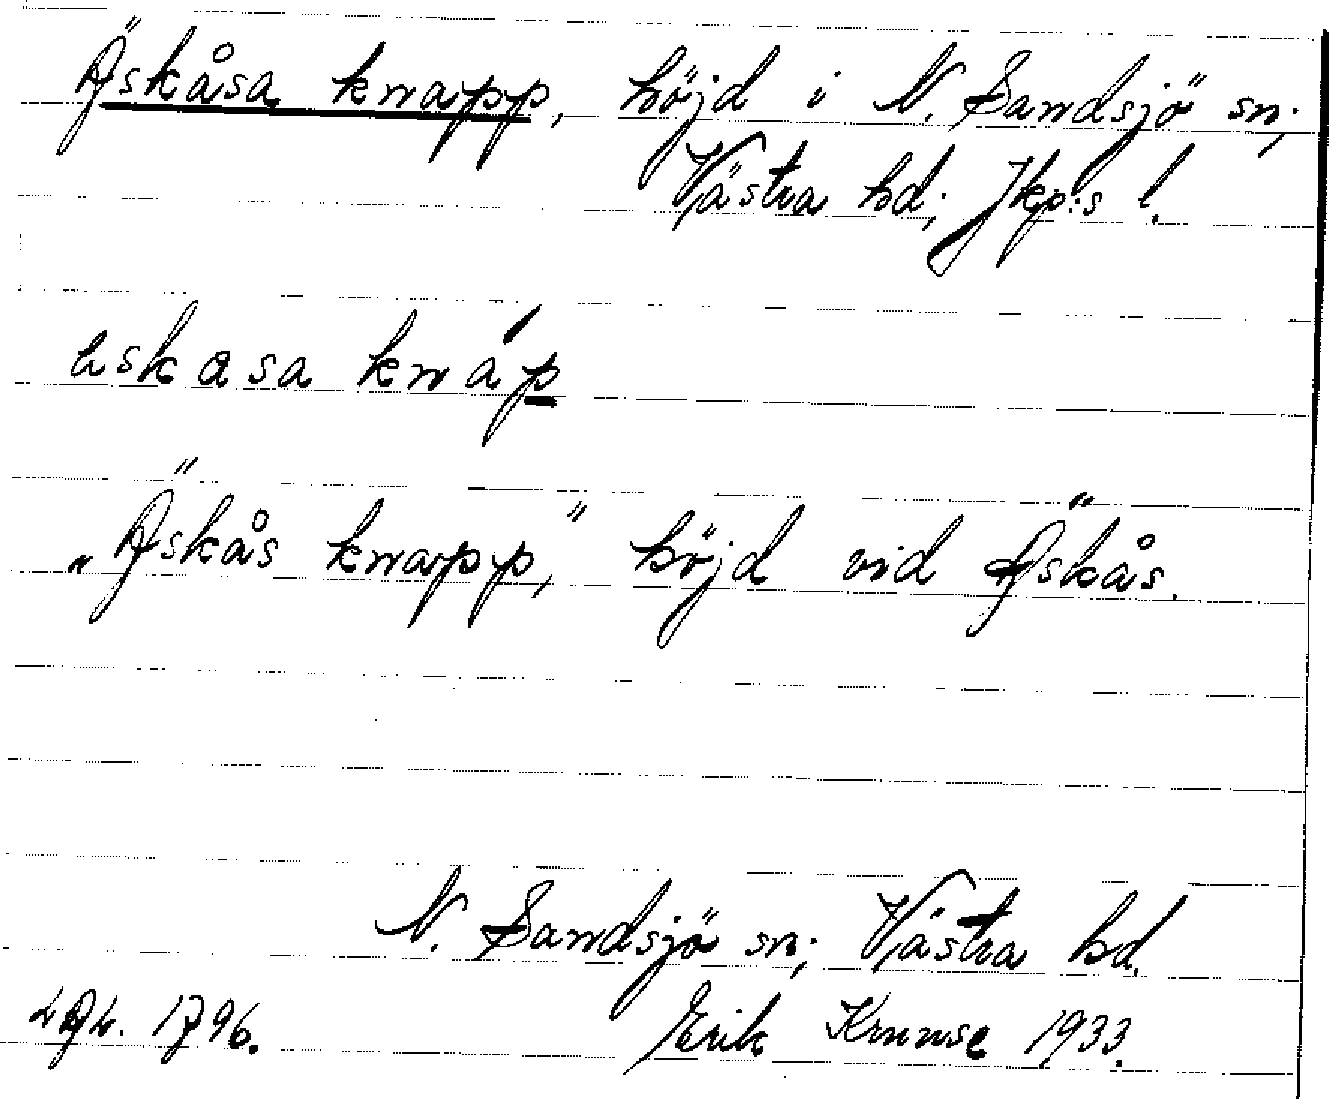 Äskåsa knapp, höjd i N. Sandsjö sn;
Västra hd; Jkp:s l.
knáp
"Äskås knapp," höjd vid Äskås.
N. Sandsjö sn; Västra hd.
Erik Kruuse 1933.